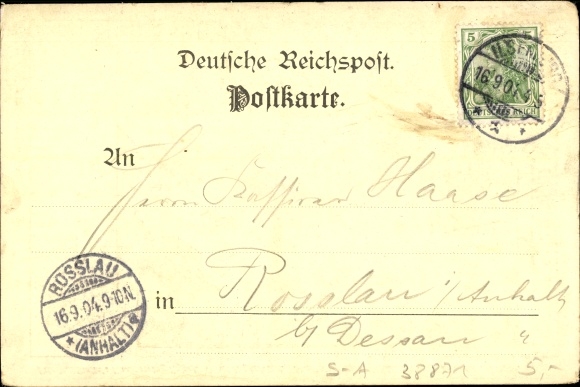 5
ILSENBURG
16.9.04.
DEUTSCHES REICH
Deutsche Reichspost.
Postkarte.
An
Herrn Kassirer Haase
ROSSLAU
16.9.04.9-10N.
*(ANHALT)*
in Rosslau i/Anhalt
b/ Dessau "
S-A 38871 5,-